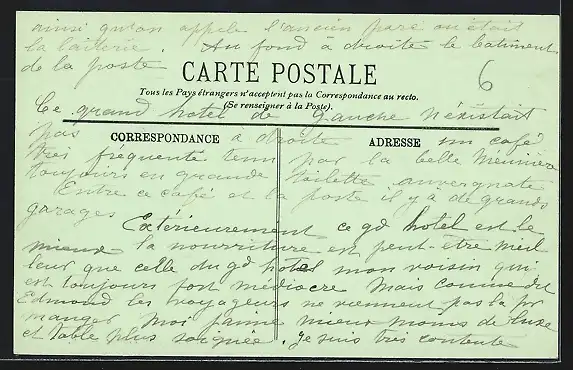 ainsi qu'on appele l'ancien parc où était
la laiterie. Au fond à droite le batiment
de la poste
6
CARTE POSTALE
Tous les Pays étrangers n'acceptent pas la Correspondance au recto.
(Se renseigner à la Poste).
Ce grand hotel de gauche n'existait
pas à droite un café
CORRESPONDANCE
ADRESSE
très fréquenté tenu par la belle meunière
toujours en grande toilette auvergnate
Entre ce café et la poste il y a de grands
garages
Extérieurement ce gd hotel est le
mieux la nourriture est peut-etre meil
leur que celle du gd hotel mon voisin qui
est toujours fort médiocre mais comme dit
Edmond les voyageurs ne viennent pas là pr
manger Moi j'aime mieux moins de luxe
et table plus soignée. je suis très contente